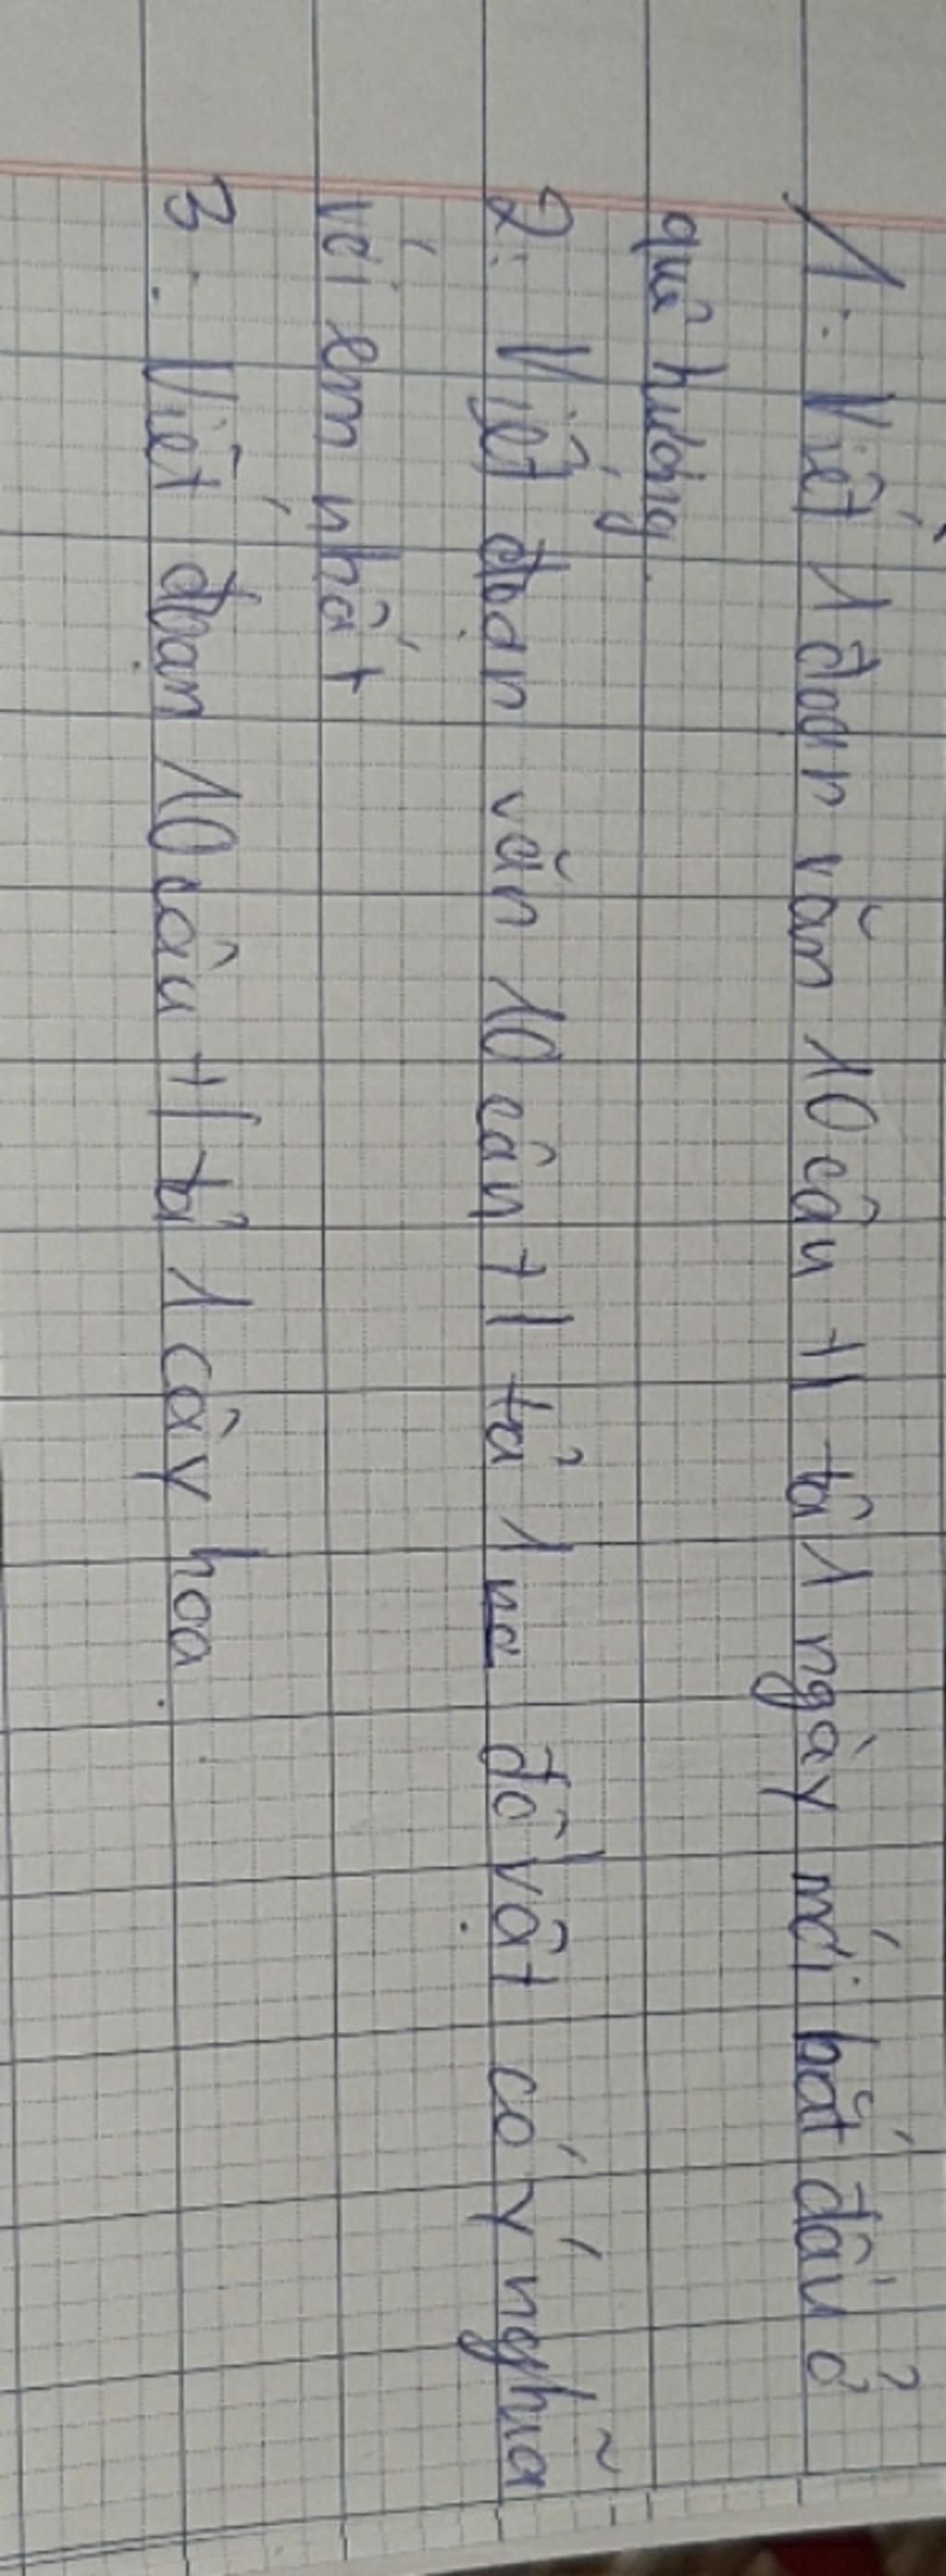 1: Viết 1 đoạn văn 10 câu +1 tả 1 ngày mới bắt đầu ở
quê hương.
2: Viết đoạn văn 10 câu +1 tả 1 đồ vật có ý nghĩa
với em nhất
3: Viết đoạn 10 câu +1 tả 1 cây hoa.